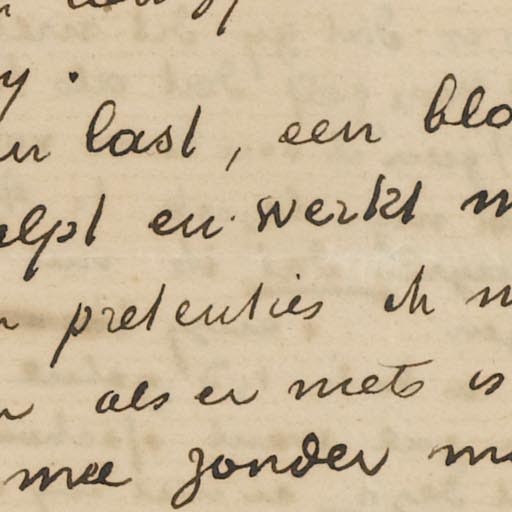 y.
en last, een blo
elpt en werkt m
n pretenties ik m
n als er niets is
mee zonder m